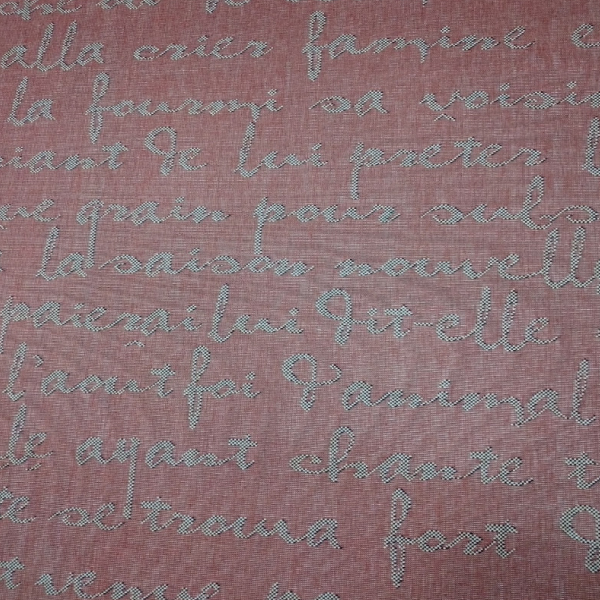 alla crier famine
la fourmi sa voisin
iant de lui preter
grain pour subs
la saison nouvell
paierai lui dit-elle
l'aout foi d'animal
ayant chante
se trouva fort